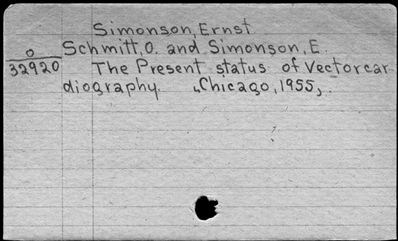 Simonson, Ernst
O Schmitt, O. and Simonson, E.
32920 The Present status of Vectorcar
diography. [Chicago, 1955].